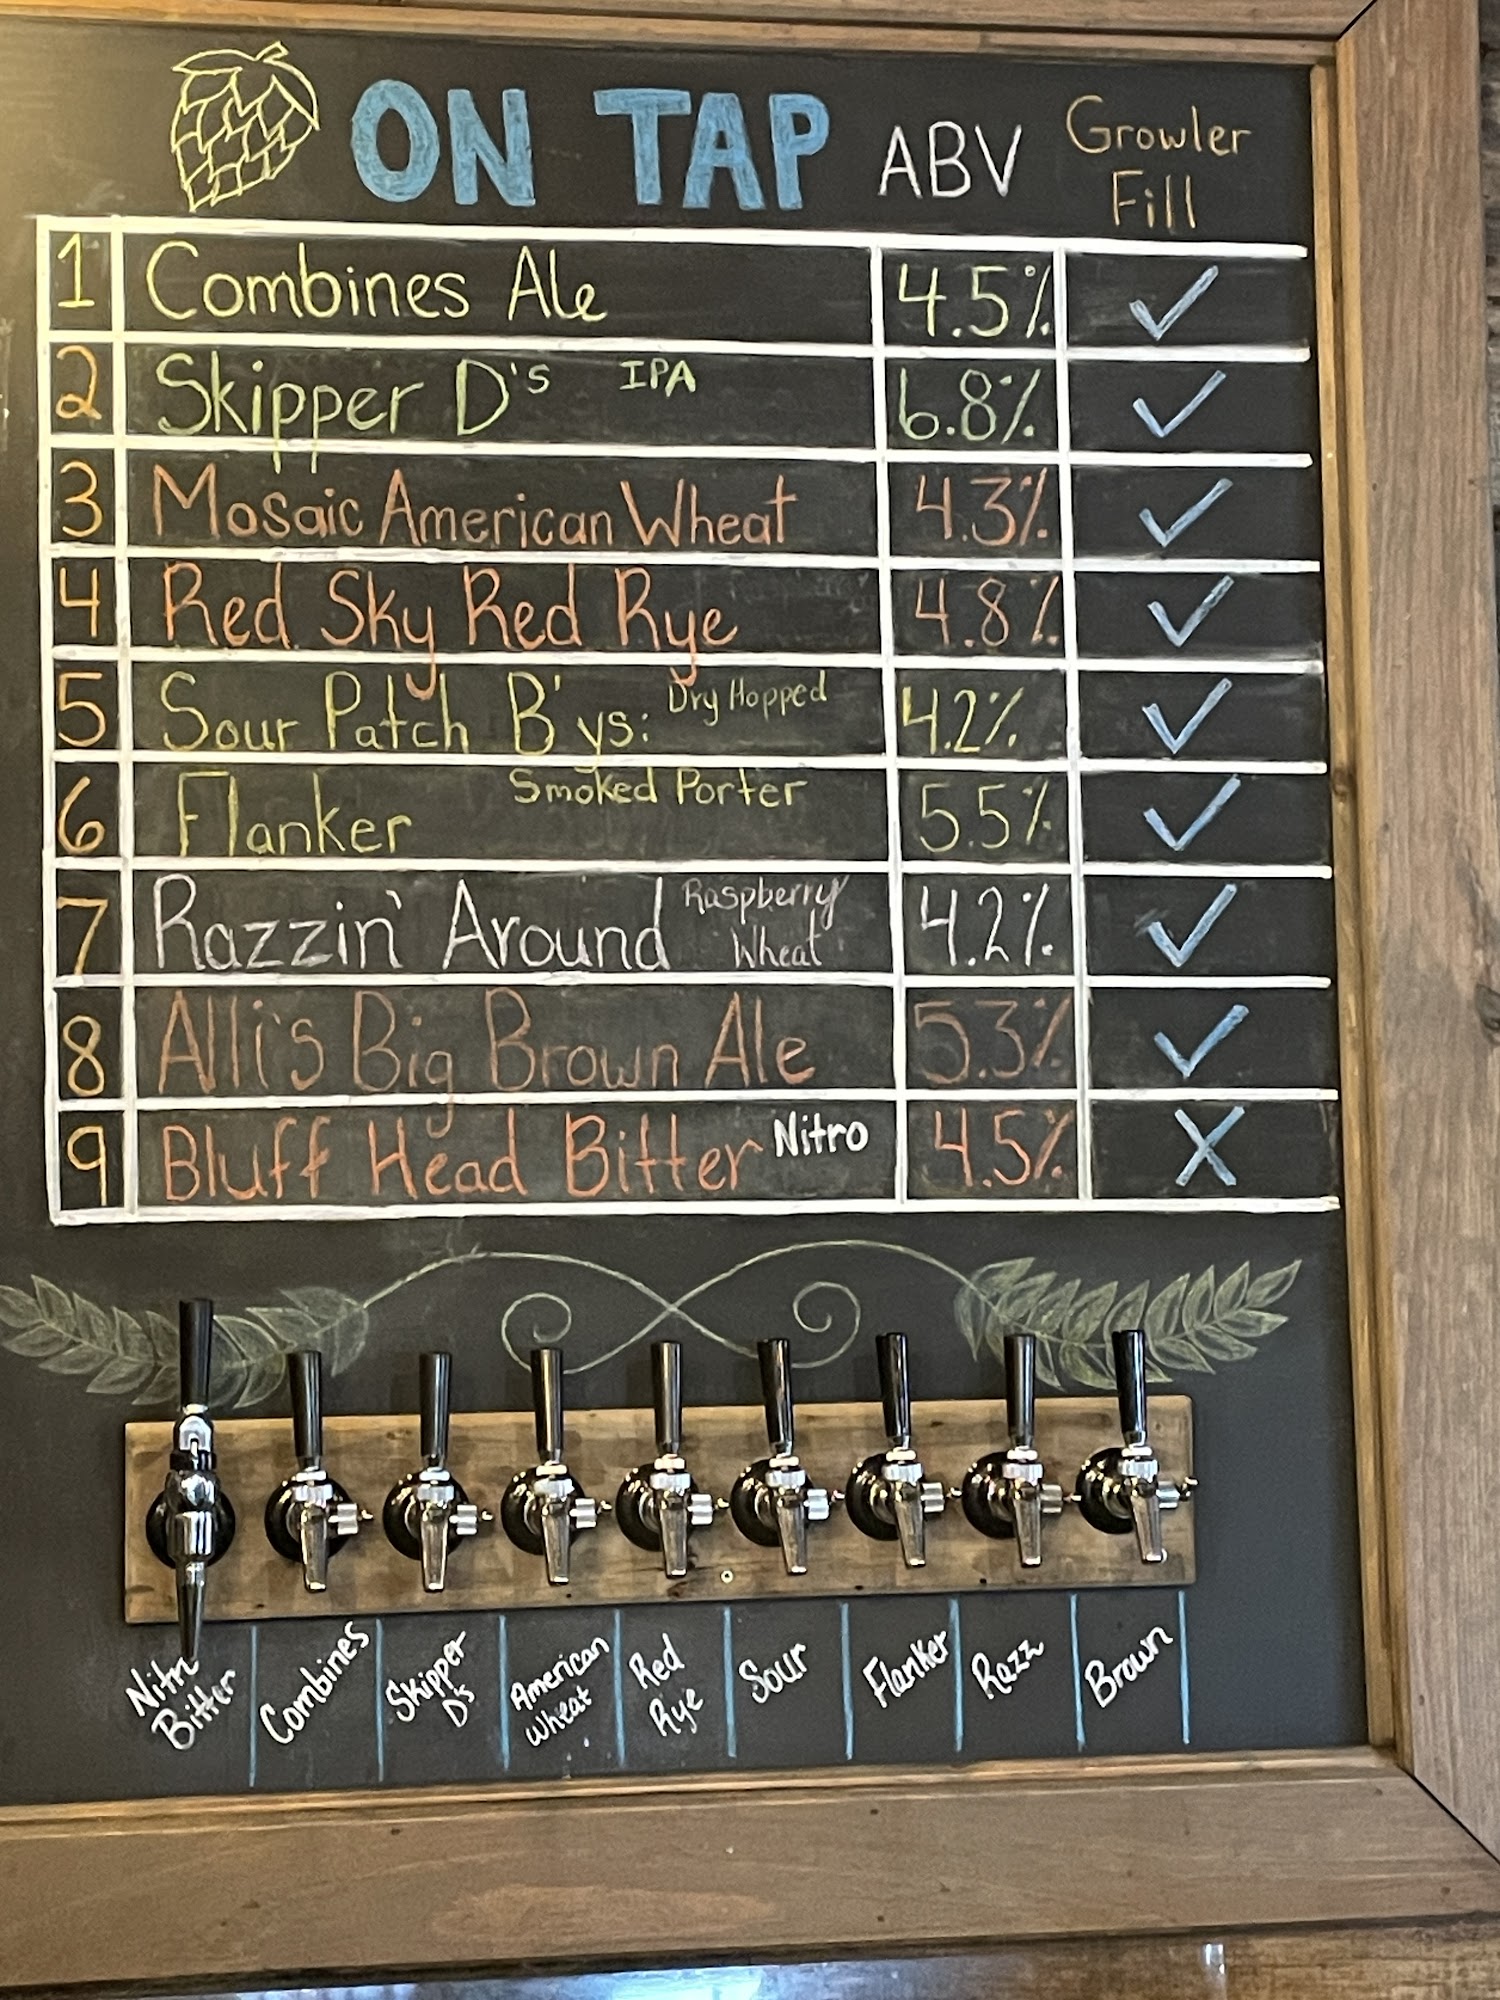 ON TAP ABV Growler Fill
1 Combines Ale 4.5% ✓
2 Skipper D's IPA 6.8% ✓
3 Mosaic American Wheat 4.3% ✓
4 Red Sky Red Rye 4.8% ✓
5 Sour Patch B'ys: Dry Hopped 4.2% ✓
6 Flanker Smoked Porter 5.5% ✓
7 Razzin' Around Raspberry Wheat 4.2% ✓
8 Alli's Big Brown Ale 5.3% ✓
9 Bluff Head Bitter Nitro 4.5% X
Nitro Bitter
Combines
Skipper D's
American Wheat
Red Rye
Sour
Flanker
Razz
Brown